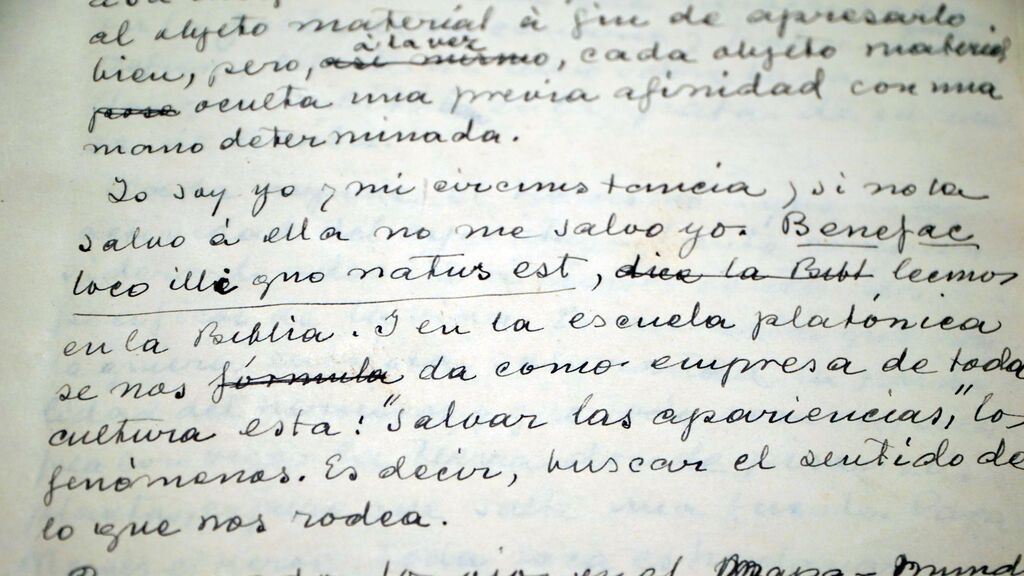 al objeto material á fin de apresarlo
bien, pero, así mismo á la vez, cada objeto material
posee oculta una previa afinidad con una
mano determinada.
Yo soy yo y mi circunstancia, y si no la
salvo á ella no me salvo yo. Benefac
loco illi quo natus est, dice la Bibl leemos
en la Biblia. Y en la escuela platónica
se nos fórmula da como empresa de toda
cultura esta: "salvar las apariencias," los
fenómenos. Es decir, buscar el sentido de
lo que nos rodea.
en el Mapa-Mund